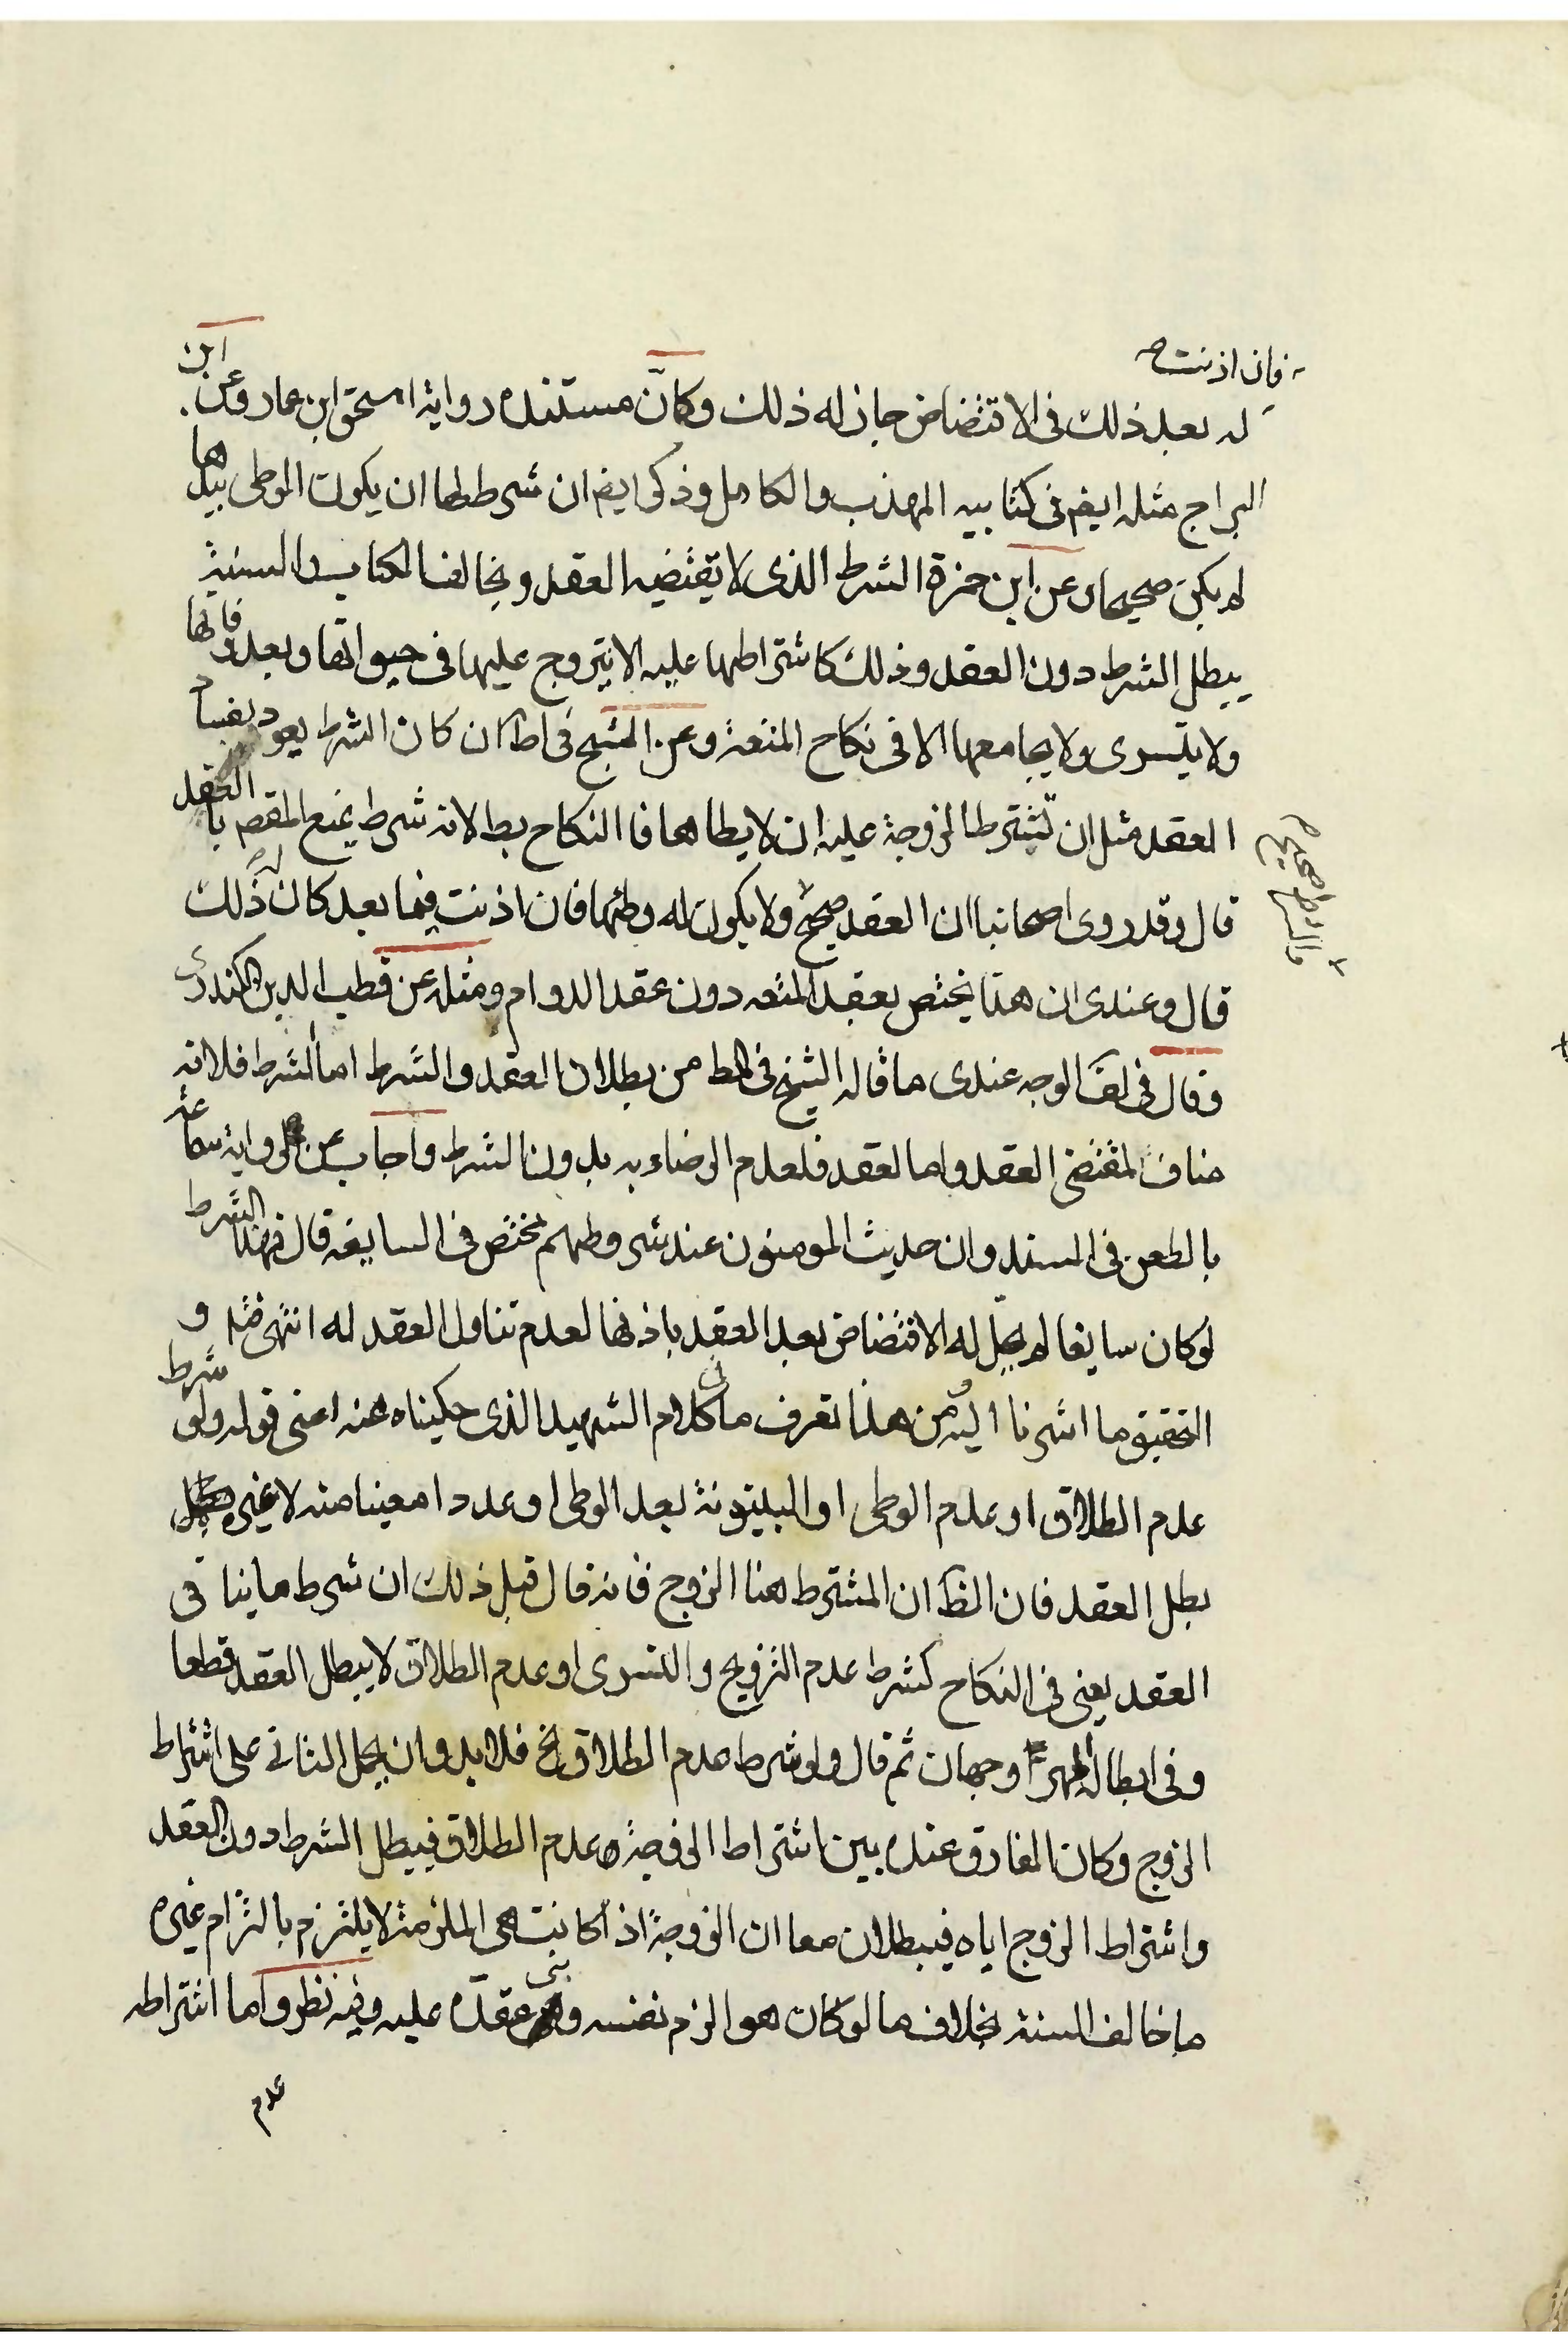 فان اذنت
له بعد ذلك فى الاقتضاض جاز له ذلك وكانّ مستنده رواية اسحق ابن عمار وعن ابن
البراج مثله ايض فى كتابيه المهذب والكامل وذكر ايض ان شرط لها ان يكون الوطى بيدها
لم يكن صحيحا وعن ابن حمزة الشرط الذى لا يقتضيه العقد ويخالف الكتاب والسنة
يبطل الشرط دون العقد وذلك كاشتراطها عليه الا يتزوج عليها فى حيوتها وبعد وفاتها
ولا يتسرى ولا يجامعها الا فى نكاح المتعة وعن الشيخ فى ط ان كان الشرط يعود بفساد
العقد مثل ان تشترط الزوجة عليه ان لا يطاها فا النكاح بط لانه شرط يمنع المقصو بالعقد
قال وقد روى اصحابنا ان العقد صحيح ولا يكون له وطئها فان اذنت فيما بعد كان له ذلك
والشرط صحيح
قال وعندى ان هذا يختص بعقد المتعه دون عقد الدوام ومثله عن قطب الدين الكندرى
وقال فى لف الوجه عندى ما قاله الشيخ فى ط من بطلان العقد والشرط اما الشرط فلانه
مناف لمقتضى العقد واما لعقد فلعدم الرضاء به بدون الشرط واجاب عن رواية سماعة
بالطعن فى السند وان حديث المومنون عند شروطهم مختص فى السايغه قال فهذا الشرط
لو كان سايغا لم يحل له الاقتضاض بعد العقد باذنها لعدم تناول العقد له انتهى فتم و
التحقيق ما اشرنا اليه ومن هذا تعرف ما فى كلام الشهيد الذى حكيناه عنه اعنى قوله ولو شرط
عدم الطلاق او عدم الوطى او البينونة بعد الوطى او عددا معينا منه لا غير
بطل العقد فان الظ ان المشترط هنا الزوج فانه قال قبل ذلك ان شرط ما ينافى
العقد يعنى فى النكاح كشرط عدم التزويج والتسرى او عدم الطلاق لا يبطل العقد قطعا
وفى ابطال المهر وجهان ثم قال ولو شرط عدم الطلاق الخ فلا بد وان يحمل الثانى على اشتراط
الزوج وكان الفارق عنده بين اشتراط الزوجة عدم الطلاق فيبطل الشرط دون العقد
واشتراط الزوج اياه فيبطلان معا ان الزوجة اذا كانت هى الملزمة لا يلتزم بالتزام غيره
ما خالف السنة بخلاف ما لو كان هو الزم نفسه وبنى عقده عليه وفيه نظر واما اشتراطه
عدم